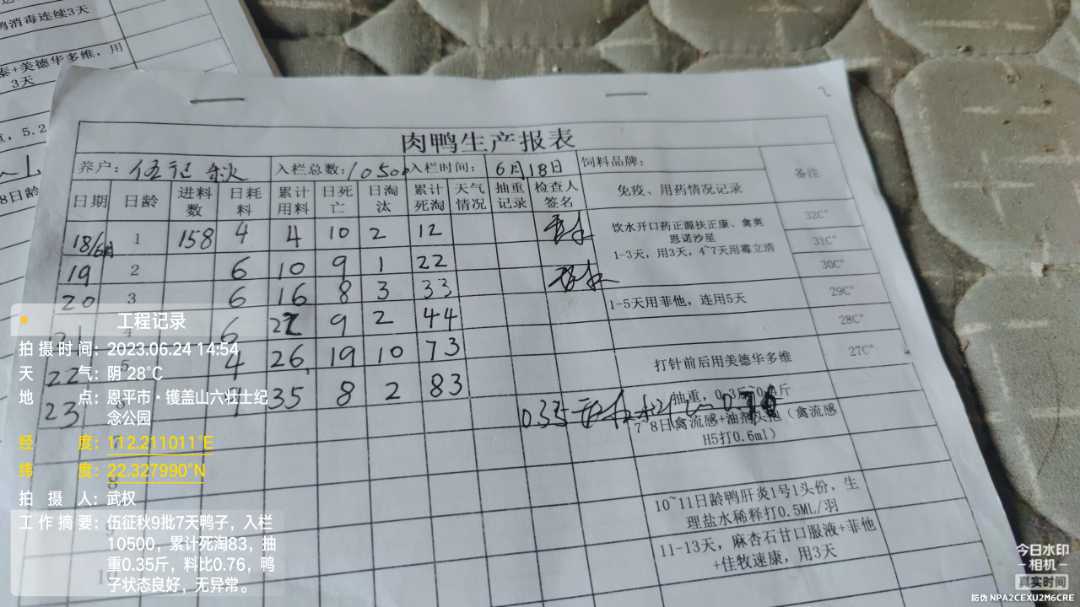 鸭消毒连续3天
泰+美德华多维，用
3天
5.2
8日龄
肉鸭生产报表
养户：伍征秋 入栏总数：10500 入栏时间：6月18日 饲料品牌：
日期 日龄 进料数 日耗料 累计用料 日死亡 日淘汰 累计死淘 天气情况 抽重记录 检查人签名 免疫、用药情况记录 备注
18/6月 1 158 4 4 10 2 12 饮水开口药正源扶正康、禽奥 32C°
恩诺沙星
19 2 6 10 9 1 22 1-3天，用3天，4~7天用霉立清 31C°
20 3 6 16 8 3 33 30C°
21 4 6 22 9 2 44 1-5天用菲他，连用5天 29C°
22 4 26 19 10 73 28C°
23 9 35 8 2 83 打针前后用美德华多维 27C°
抽重，
0.35
7~8日禽流感+油剂（禽流感
H5打0.6ml）
10~11日龄鸭肝炎1号1头份，生
理盐水稀释打0.5ML/羽
11-13天，麻杏石甘口服液+菲他
+佳牧速康，用3天
工程记录
拍摄时间：2023.06.24 14:54
天气：阴 28°C
地点：恩平市·镬盖山六壮士纪
念公园
经度：112.211011°E
纬度：22.327990°N
拍摄人：武权
工作摘要：伍征秋9批7天鸭子，入栏
10500，累计死淘83，抽
重0.35斤，料比0.76，鸭
子状态良好，无异常。
今日水印
-相机-
真实时间
防伪 NPA2CEXU2M6CRE